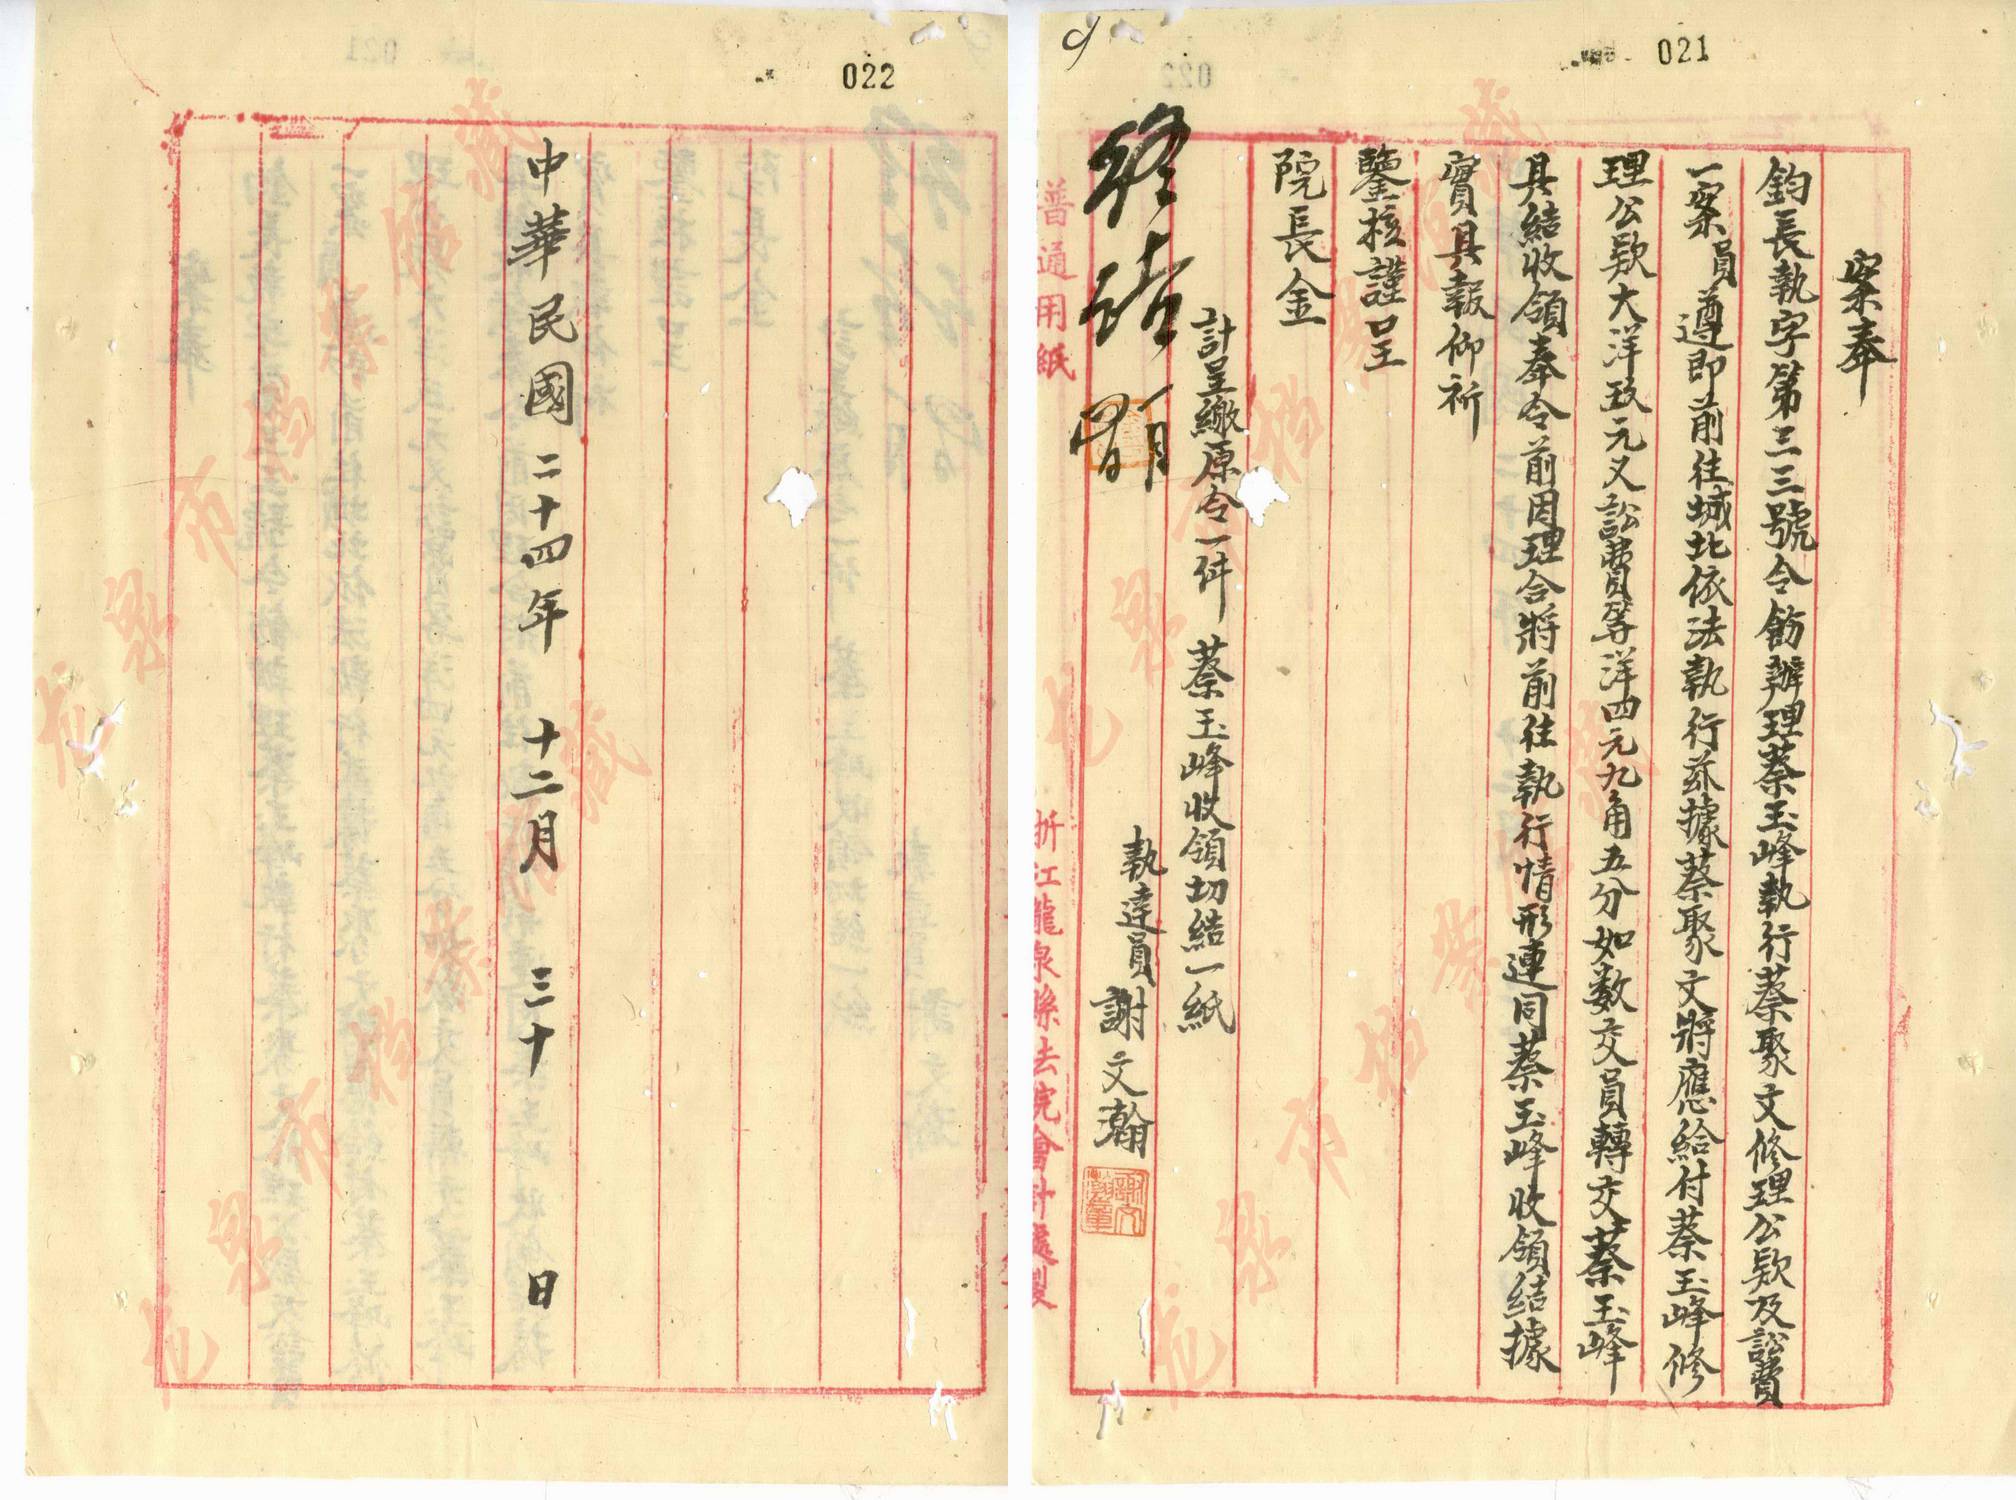 021
案奉
鈞長執字第三三號令飭辦理蔡玉峰執行蔡聚文修理公款及訟費
一案員遵即前往城北依法執行茲據蔡聚文將應給付蔡玉峰修
理公款大洋玖元又訟費等洋四元九角五分如数交員轉交蔡玉峰
具結收領奉令前因理合將前往執行情形連同蔡玉峰收領結據
實具報仰祈
鑒核謹呈
院長金
計呈繳原令一件 蔡玉峰收領切結一紙
執達員謝文瀚
普通用紙
浙江龍泉縣法院會計處製
022
中華民國二十四年十二月三十日
龙泉市档案馆藏
龙泉市档案馆藏
龙泉市档案馆藏
龙泉市档案馆藏